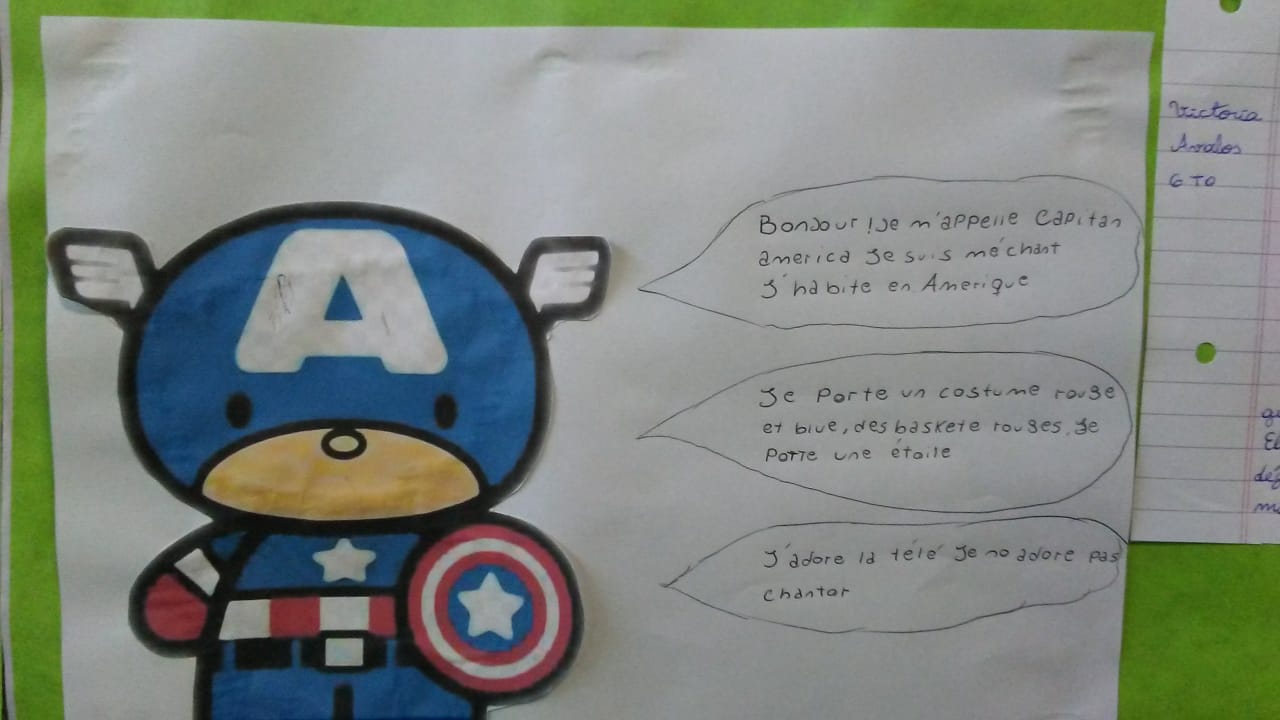 A
Bonjour ! Je m'appelle Capitan
america Je suis méchant
J'habite en Amerique
Je porte un costume rouge
et blue, des baskete rouges, Je
Porte une étoile
J'adore la télé Je no adore pas
chantar
Victoria
Avalos
6 TO